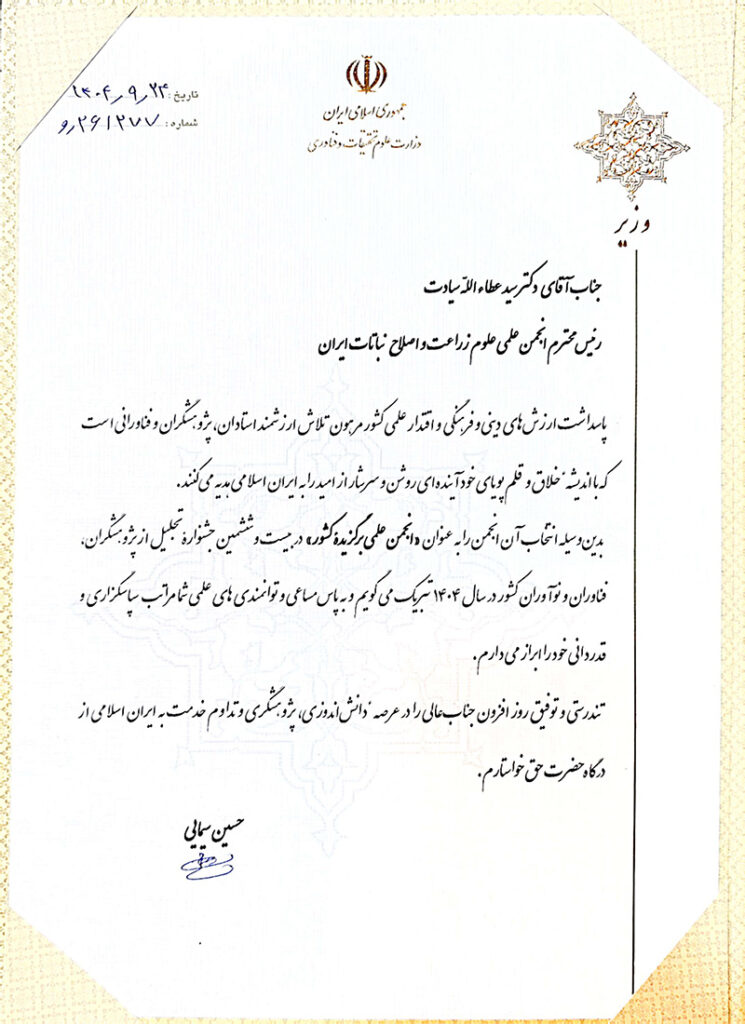 تاریخ: ۱۴۰۴٫۹٫۲۴
شماره: ۲۶۱۲۷۷٫و
جمهوری اسلامی ایران
وزارت علوم تحقیقات و فناوری
وزیر
جناب آقای دکتر سید عطاءاللّه سیادت
رئیس محترم انجمن علمی علوم زراعت و اصلاح نباتات ایران
پاسداشت ارزش‌های دینی و فرهنگی و اقتدار علمی کشور مرهون تلاش ارزشمند استادان، پژوهشگران و فناورانی است
که با اندیشهٔ خلاق و قلم پویای خود آینده‌ای روشن و سرشار از امید را به ایران اسلامی هدیه می‌کنند.
بدین وسیله انتخاب آن انجمن را به عنوان «انجمن علمی برگزیدهٔ کشور» در بیست و ششمین جشنوارهٔ تجلیل از پژوهشگران،
فناوران و نوآوران کشور در سال ۱۴۰۴ تبریک می‌گویم و به پاس مساعی و توانمندی‌های علمی شما مراتب سپاسگزاری و
قدردانی خود را ابراز می‌دارم.
تندرستی و توفیق روز افزون جناب‌عالی را در عرصهٔ دانش‌اندوزی، پژوهشگری و تداوم خدمت به ایران اسلامی از
درگاه حضرت حق خواستارم.
حسین سیمایی